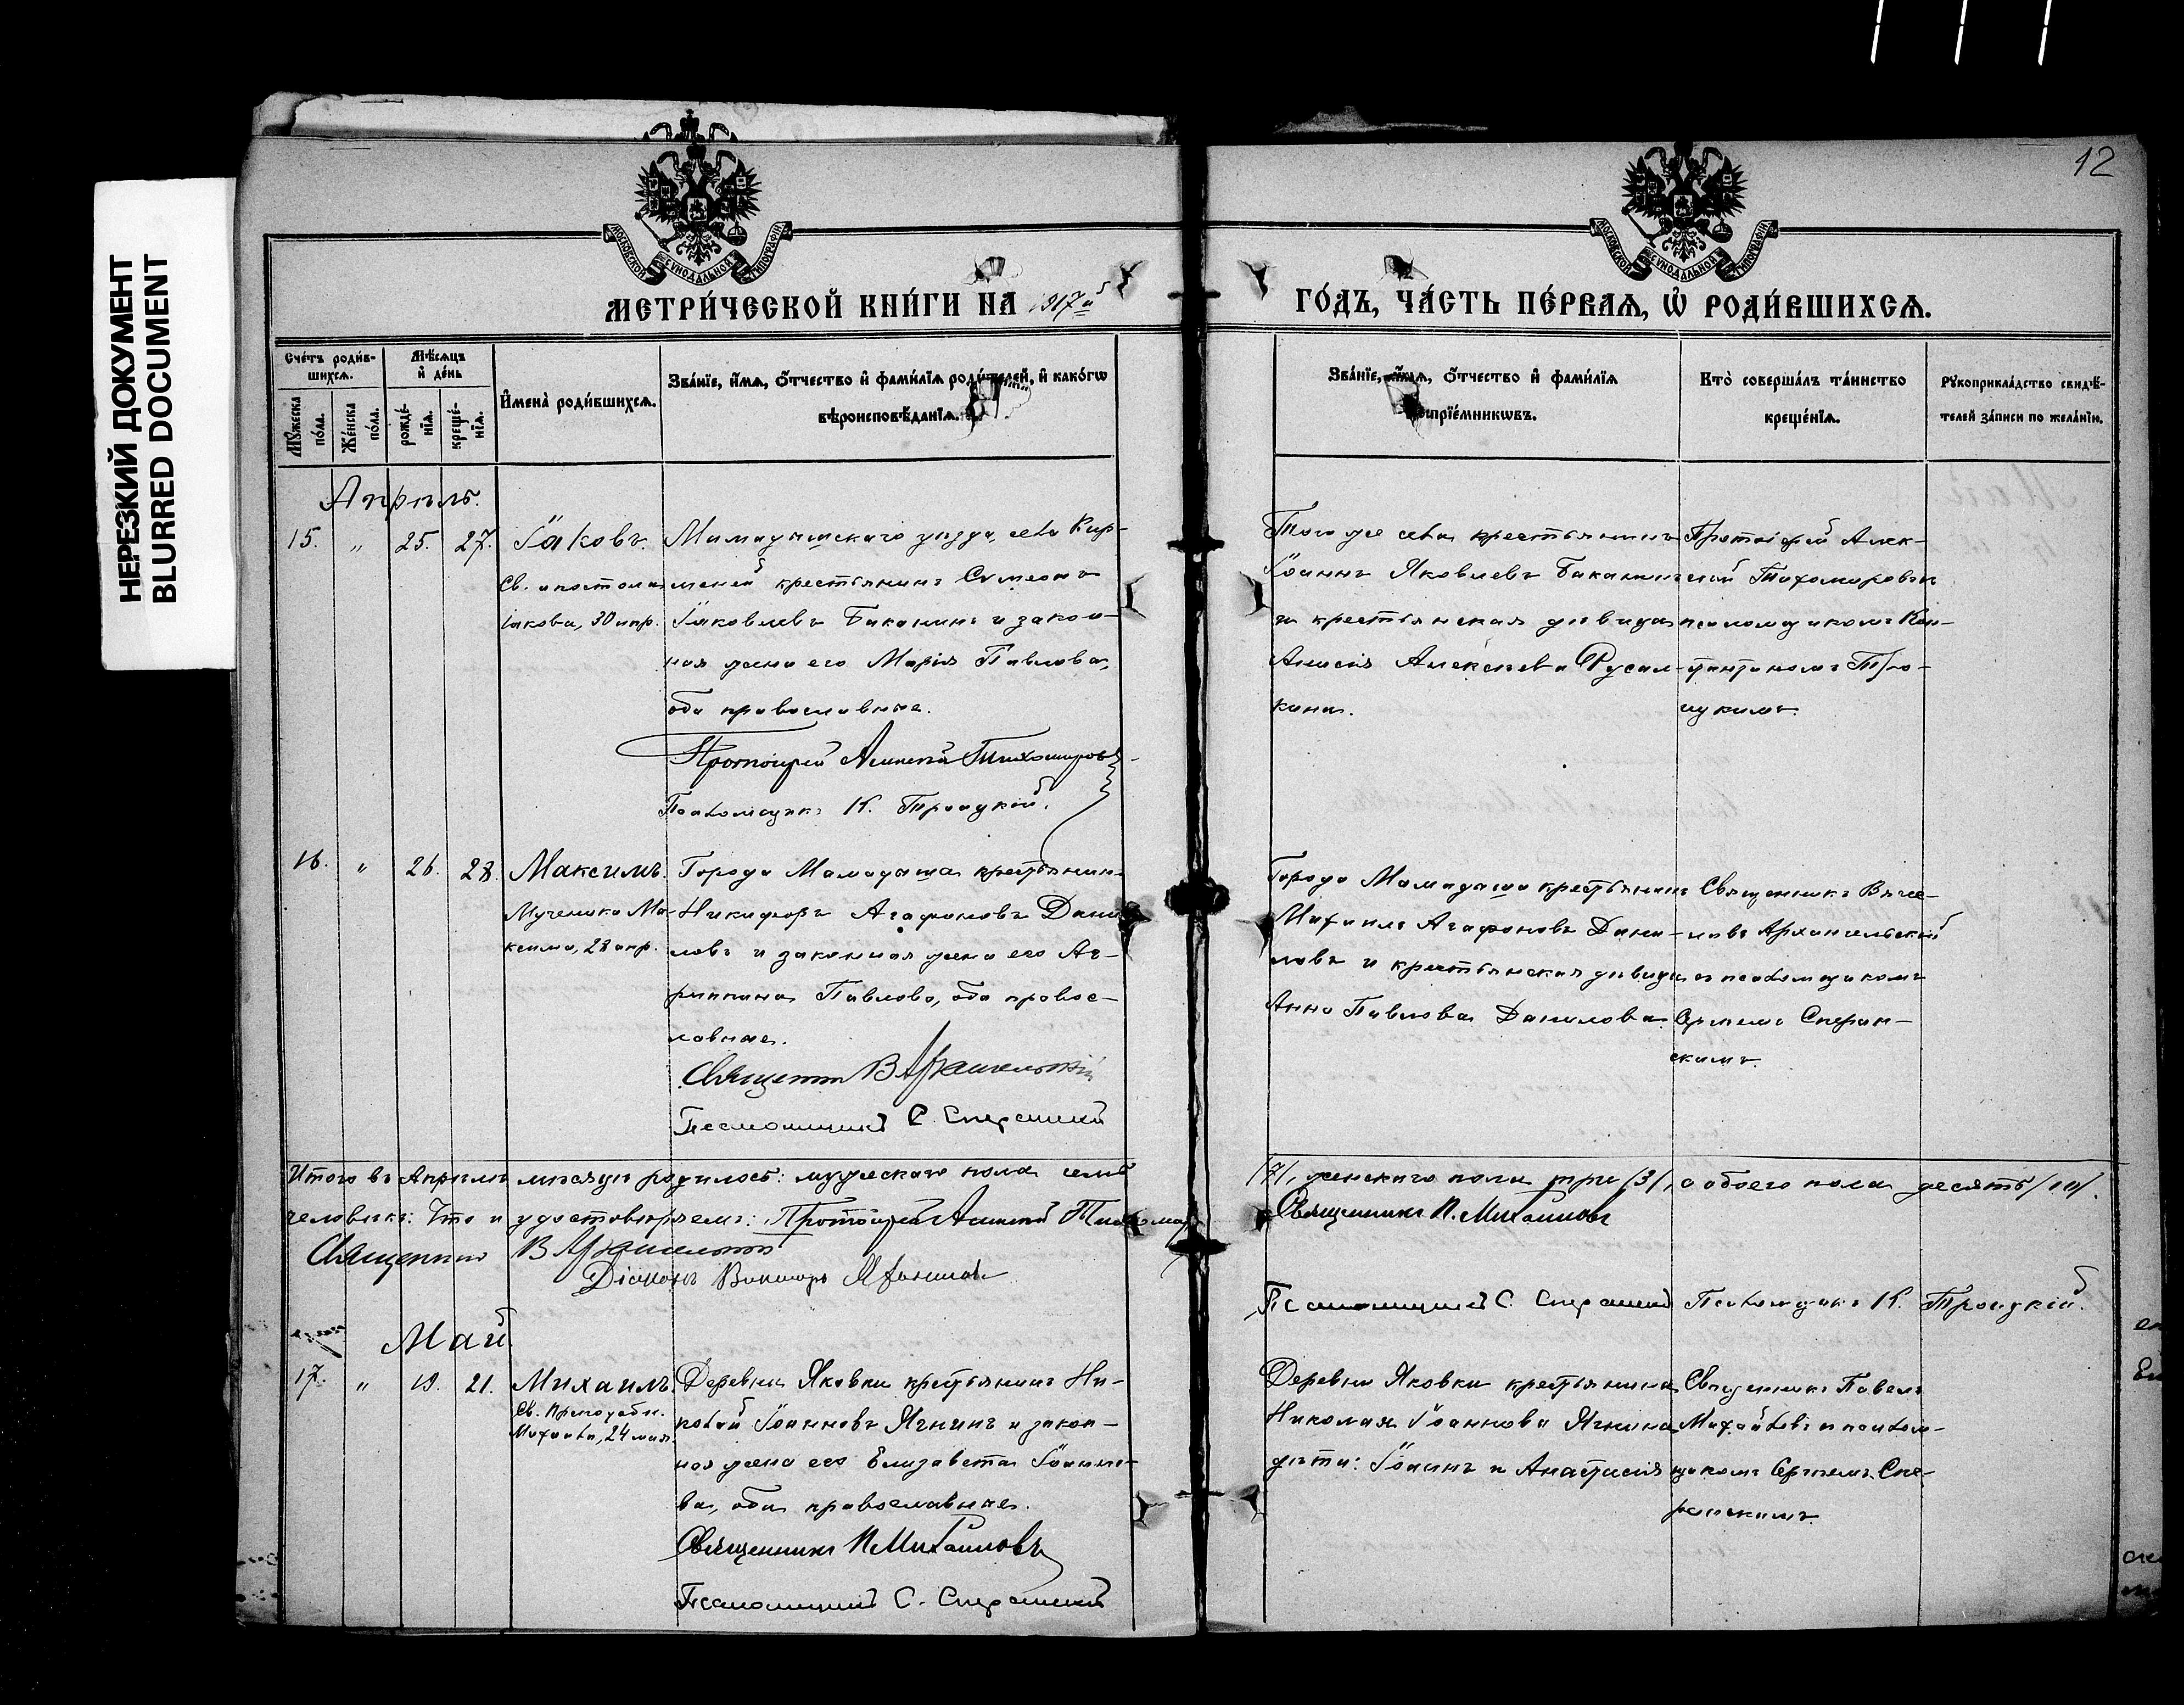 НЕРЕЗКИЙ ДОКУМЕНТ
BLURRED DOCUMENT
12
МОСКОВСКОЙ СѴНОДАЛЬНОЙ ТИПОГРАФІИ
МОСКОВСКОЙ СѴНОДАЛЬНОЙ ТИПОГРАФІИ
МЕТРИ́ЧЕСКОЙ КНИ́ГИ НА 1917й
ГО́ДЪ, ЧА́СТЬ ПЕ́РВАѦ, Ѡ҆ РОДИ́ВШИХСѦ.
Сче́тъ роди́в-
шихсѧ.
Мѣ́сѧцъ
и҆ де́нь
Мꙋ́жеска
по́ла.
Же́нска
по́ла.
рожде́-
нїѧ.
креще́-
нїѧ.
И҆мена̀ роди́вшихсѧ.
Зва́нїе, и҆́мѧ, ѻ҆́тчество и҆ фами́лїѧ роди́телей, и҆ како́гѡ
вѣроисповѣ́данїѧ.
Зва́нїе, и҆́мѧ, ѻ҆́тчество и҆ фами́лїѧ
воспрїе́мникѡвъ.
Кто̀ соверша́лъ та́инство
креще́нїѧ.
Рꙋкоприкла́дство свидѣ́-
телей за́писи по жела́нїю.
Апрѣль.
15. „ 25. 27. Іаковъ. Мамадышскаго уѣзда, села Кир-
Св. апостола меней крестьянинъ Сумеонъ
Іакова, 30 апр. Іаковлевъ Баканинъ и закон-
ная жена его Марія Павлова,
оба православные.
Протоіерей Алексій Тихомировъ
Псаломщикъ К. Троицкій.
Того же села крестьянинъ
Іоаннъ Яковлевъ Баканинъ
и крестьянская дѣвица
Анисія Алексѣева Русал-
кина.
Протоіерей Алек-
сій Тихомировъ съ
псаломщикомъ Кон-
стантиномъ Тро-
ицкимъ.
16. „ 26. 28. Максимъ. Города Мамадыша крестьянинъ
Мученика Ма- Никифоръ Агафоновъ Дани-
ксима, 28 апр. ловъ и законная жена его Аг-
риппина Павлова, оба правос-
лавные.
Священникъ В Архангельскій
Псаломщикъ С. Сперанскій
Города Мамадыша крестьянинъ
Михаилъ Агафоновъ Дани-
ловъ и крестьянская дѣвица
Анна Павлова Данилова.
Священникъ Вяче-
славъ Архангельскій
съ псаломщикомъ
Сергѣемъ Сперан-
скимъ.
Итого въ Апрѣлѣ мѣсяцѣ родилось: мужескаго пола семь /7/, женскаго пола три /3/, а обоего пола десять /10/.
человѣкъ: Что и удостовѣряемъ: Протоіерей Алексій Тихомировъ Священникъ П. Михайловъ
Священникъ В Архангельскій
Діаконъ Викторъ
Псаломщикъ С. Сперанскій Псаломщикъ К. Троицкій.
Май
17. „ 19. 21. Михаилъ. Деревни Яковки крестьянинъ Ни-
Св. Преподобн. колай Іоанновъ Ягнинъ и закон-
Михаила, 24 мая. ная жена его Елизавета Іоанно-
ва, оба православные.
Священникъ П Михайловъ
Псаломщикъ С. Сперанскій
Деревни Яковки крестьянина
Николая Іоаннова Ягнина
дѣти: Іоаннъ и Анастасія
Священникъ Павелъ
Михайловъ съ псалом-
щикомъ Сергѣемъ Спе-
ранскимъ.